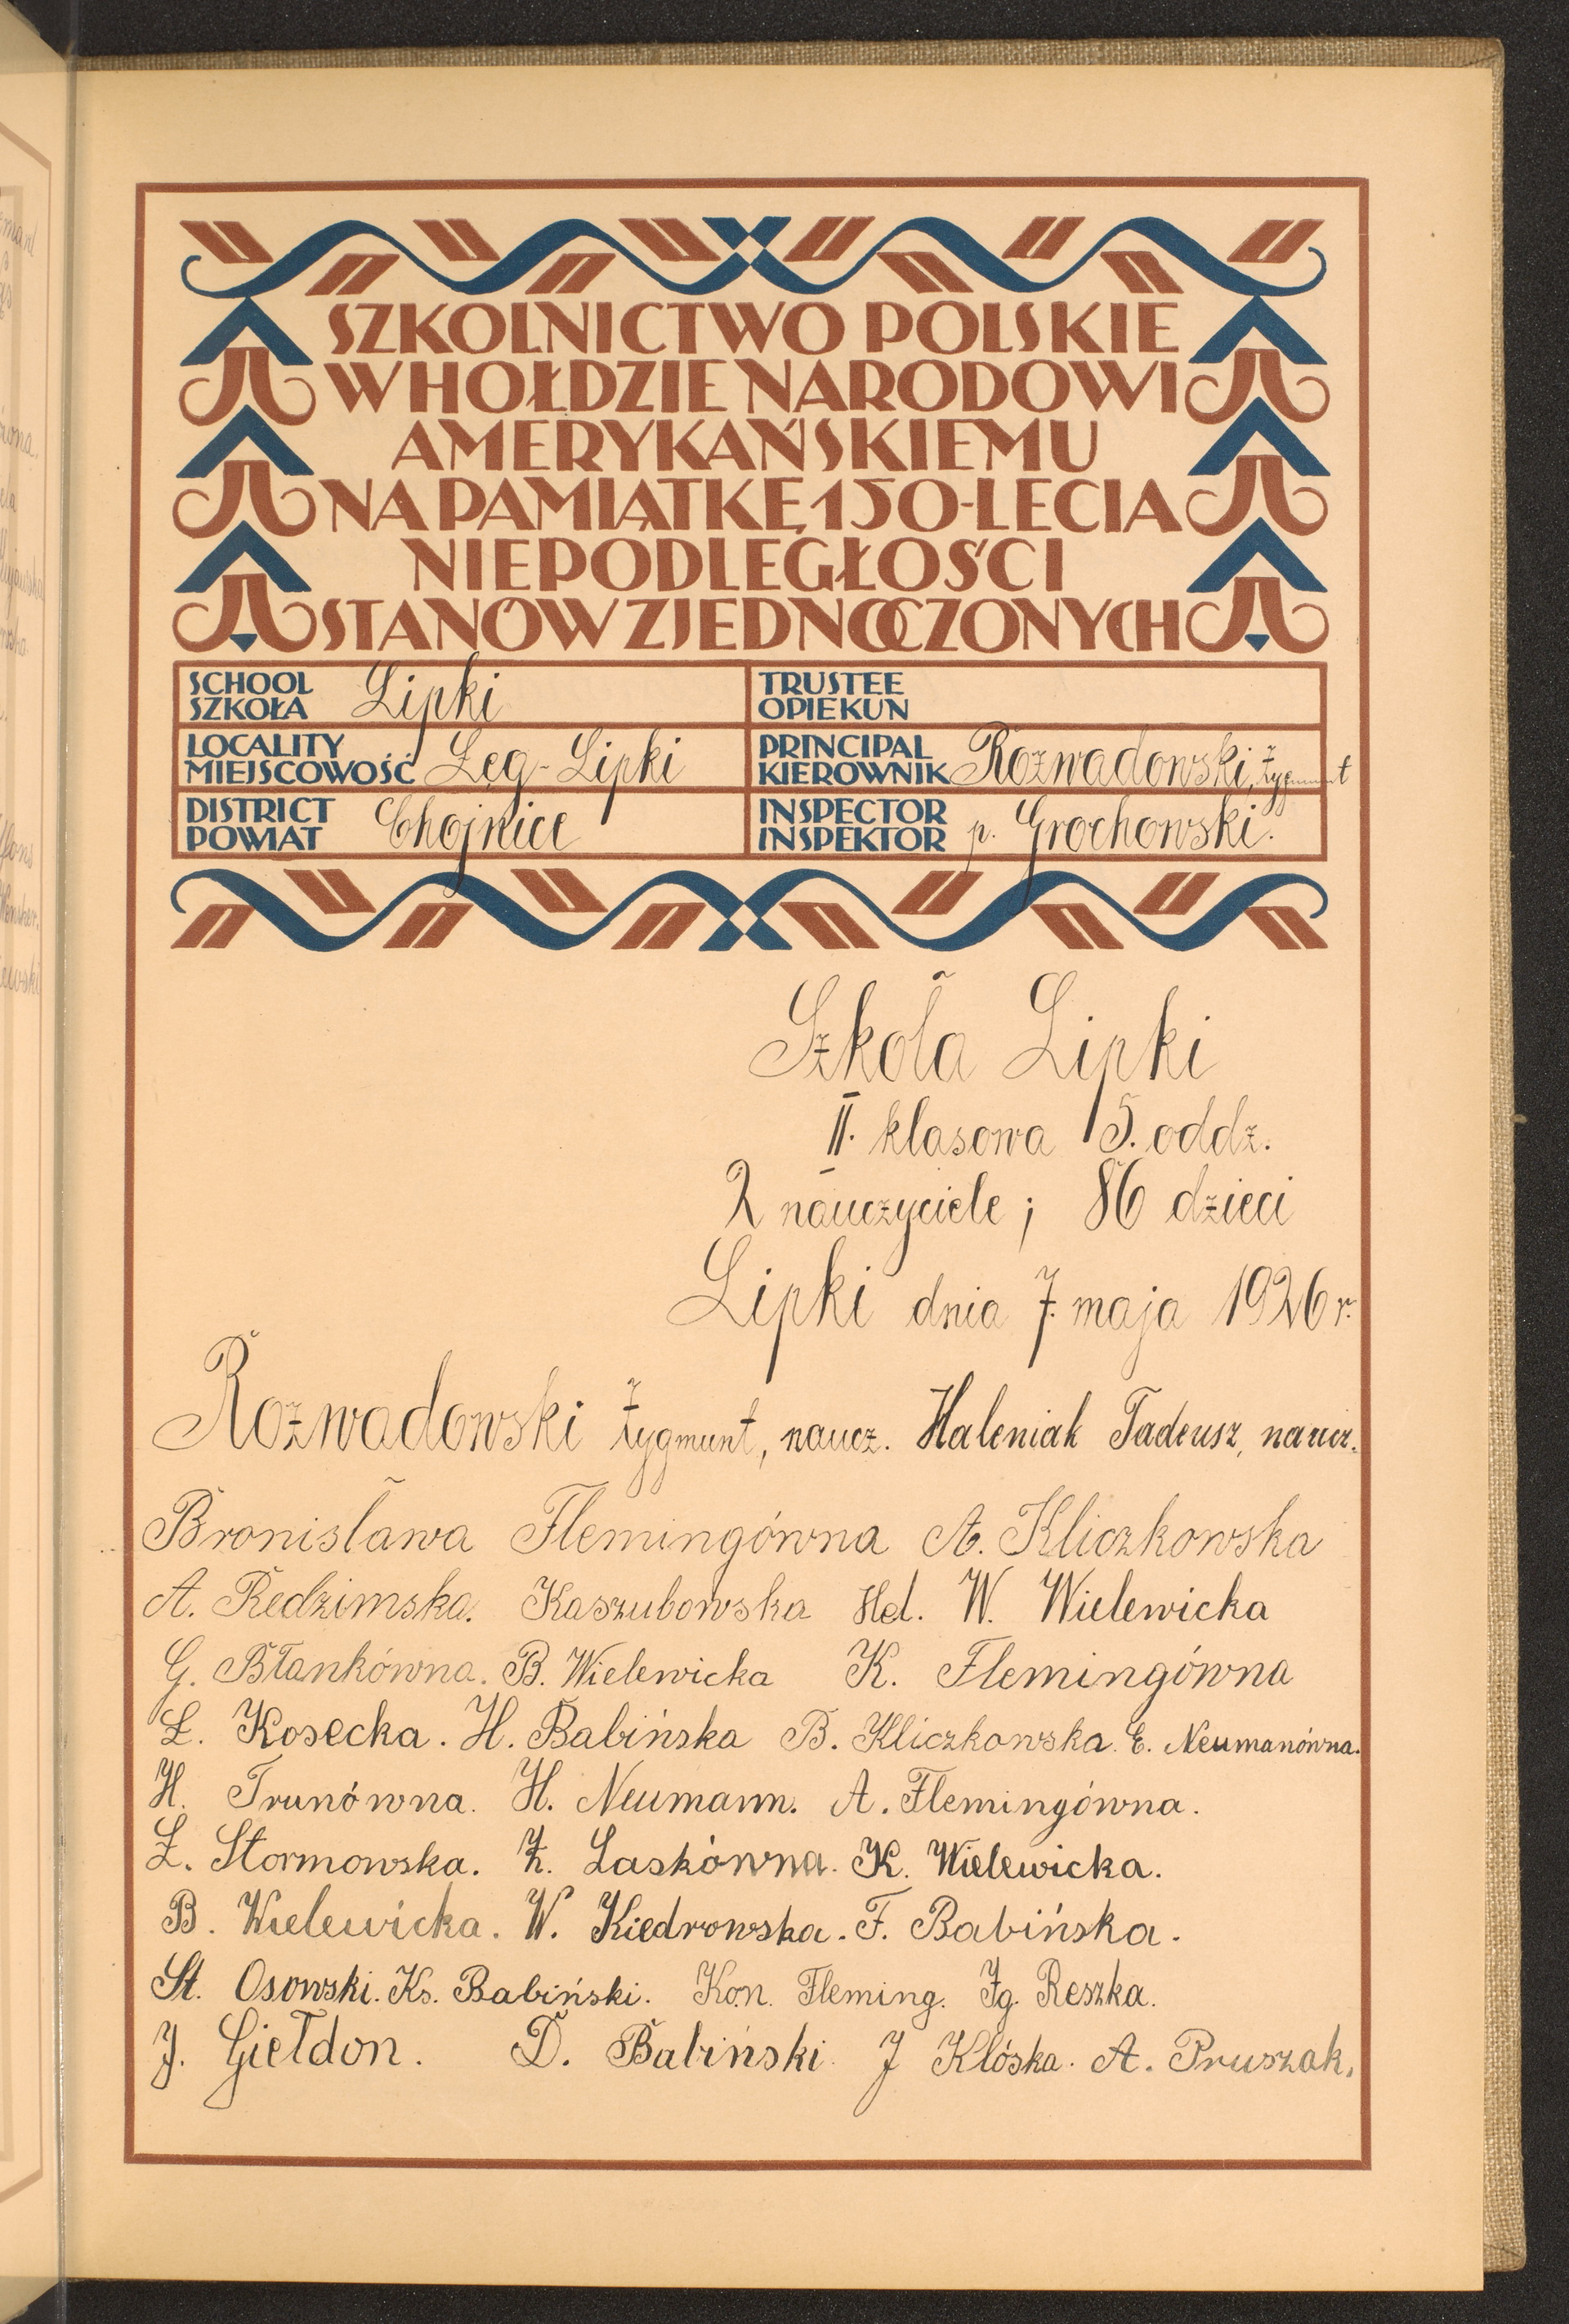 SZKOLNICTWO POLSKIE
W HOŁDZIE NARODOWI
AMERYKAŃSKIEMU
NA PAMIĄTKĘ 150-LECIA
NIEPODLEGŁOŚCI
STANÓW ZJEDNOCZONYCH
SCHOOL
SZKOŁA Lipki
TRUSTEE
OPIEKUN
LOCALITY
MIEJSCOWOŚĆ Łęg-Lipki
PRINCIPAL
KIEROWNIK Rozwadowski, Zygmunt
DISTRICT
POWIAT Chojnice
INSPECTOR
INSPEKTOR p. Grochowski.
Szkoła Lipki
II. klasowa 5. oddz.
2 nauczyciele; 86 dzieci
Lipki dnia 7. maja 1926 r.
Rozwadowski Zygmunt, naucz. Haleniak Tadeusz, naucz.
Bronisława Flemingówna A. Kliczkowska
A. Redzimska. Kaszubowska Hel. W. Wielewicka
G. Błankówna. B. Wielewicka K. Flemingówna
Ł. Kosecka. H. Babińska B. Kliczkowska. E. Neumanówna.
H. Trunówna. H. Neumann. A. Flemingówna.
Ł. Stormowska. Z. Laskówna. K. Wielewicka.
B. Wielewicka. W. Kiedrowska. F. Babińska.
St. Osowski. Ks. Babiński. Kon. Fleming. Ig. Reszka.
J. Giełdon. D. Babiński. J Klóska. A. Pruszak.